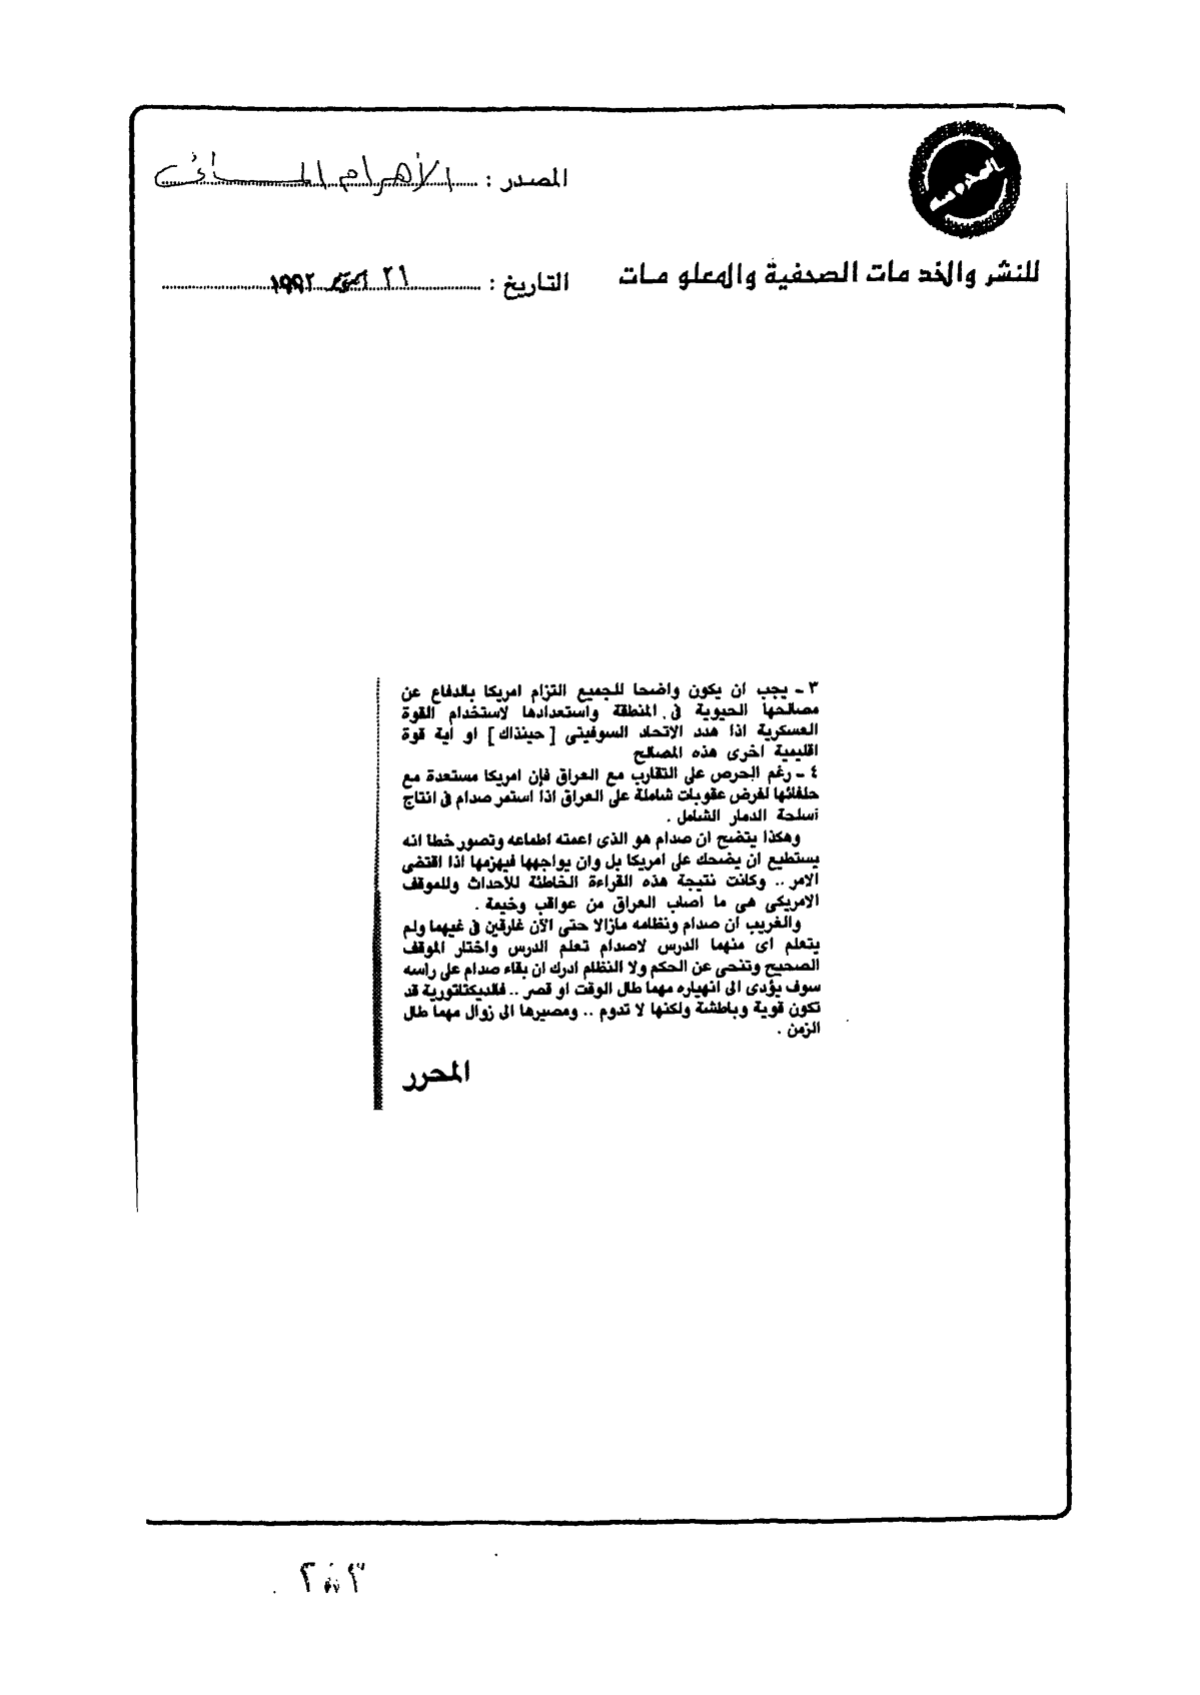 المصدر : الأهرام المسائى
للنشر والخدمات الصحفية والمعلومات
التاريخ : ٢١ اكتوبر ١٩٩٢
٣ - يجب ان يكون واضحا للجميع التزام امريكا بالدفاع عن
مصالحها الحيوية فى المنطقة واستعدادها لاستخدام القوة
العسكرية اذا هدد الاتحاد السوفيتى [ حينذاك ] او اية قوة
اقليمية اخرى هذه المصالح
٤ - رغم الحرص على التقارب مع العراق فإن امريكا مستعدة مع
حلفائها لفرض عقوبات شاملة على العراق اذا استمر صدام فى انتاج
أسلحة الدمار الشامل .
وهكذا يتضح ان صدام هو الذى اعمته اطماعه وتصور خطا انه
يستطيع ان يضحك على امريكا بل وان يواجهها فيهزمها اذا اقتضى
الامر .. وكانت نتيجة هذه القراءة الخاطئة للأحداث وللموقف
الامريكى هى ما اصاب العراق من عواقب وخيمة .
والغريب ان صدام ونظامه مازالا حتى الآن غارقين فى غيهما ولم
يتعلم اى منهما الدرس لاصدام تعلم الدرس واختار الموقف
الصحيح وتنحى عن الحكم ولا النظام ادرك ان بقاء صدام على راسه
سوف يؤدى الى انهياره مهما طال الوقت او قصر .. فالديكتاتورية قد
تكون قوية وباطشة ولكنها لا تدوم .. ومصيرها الى زوال مهما طال
الزمن .
المحرر